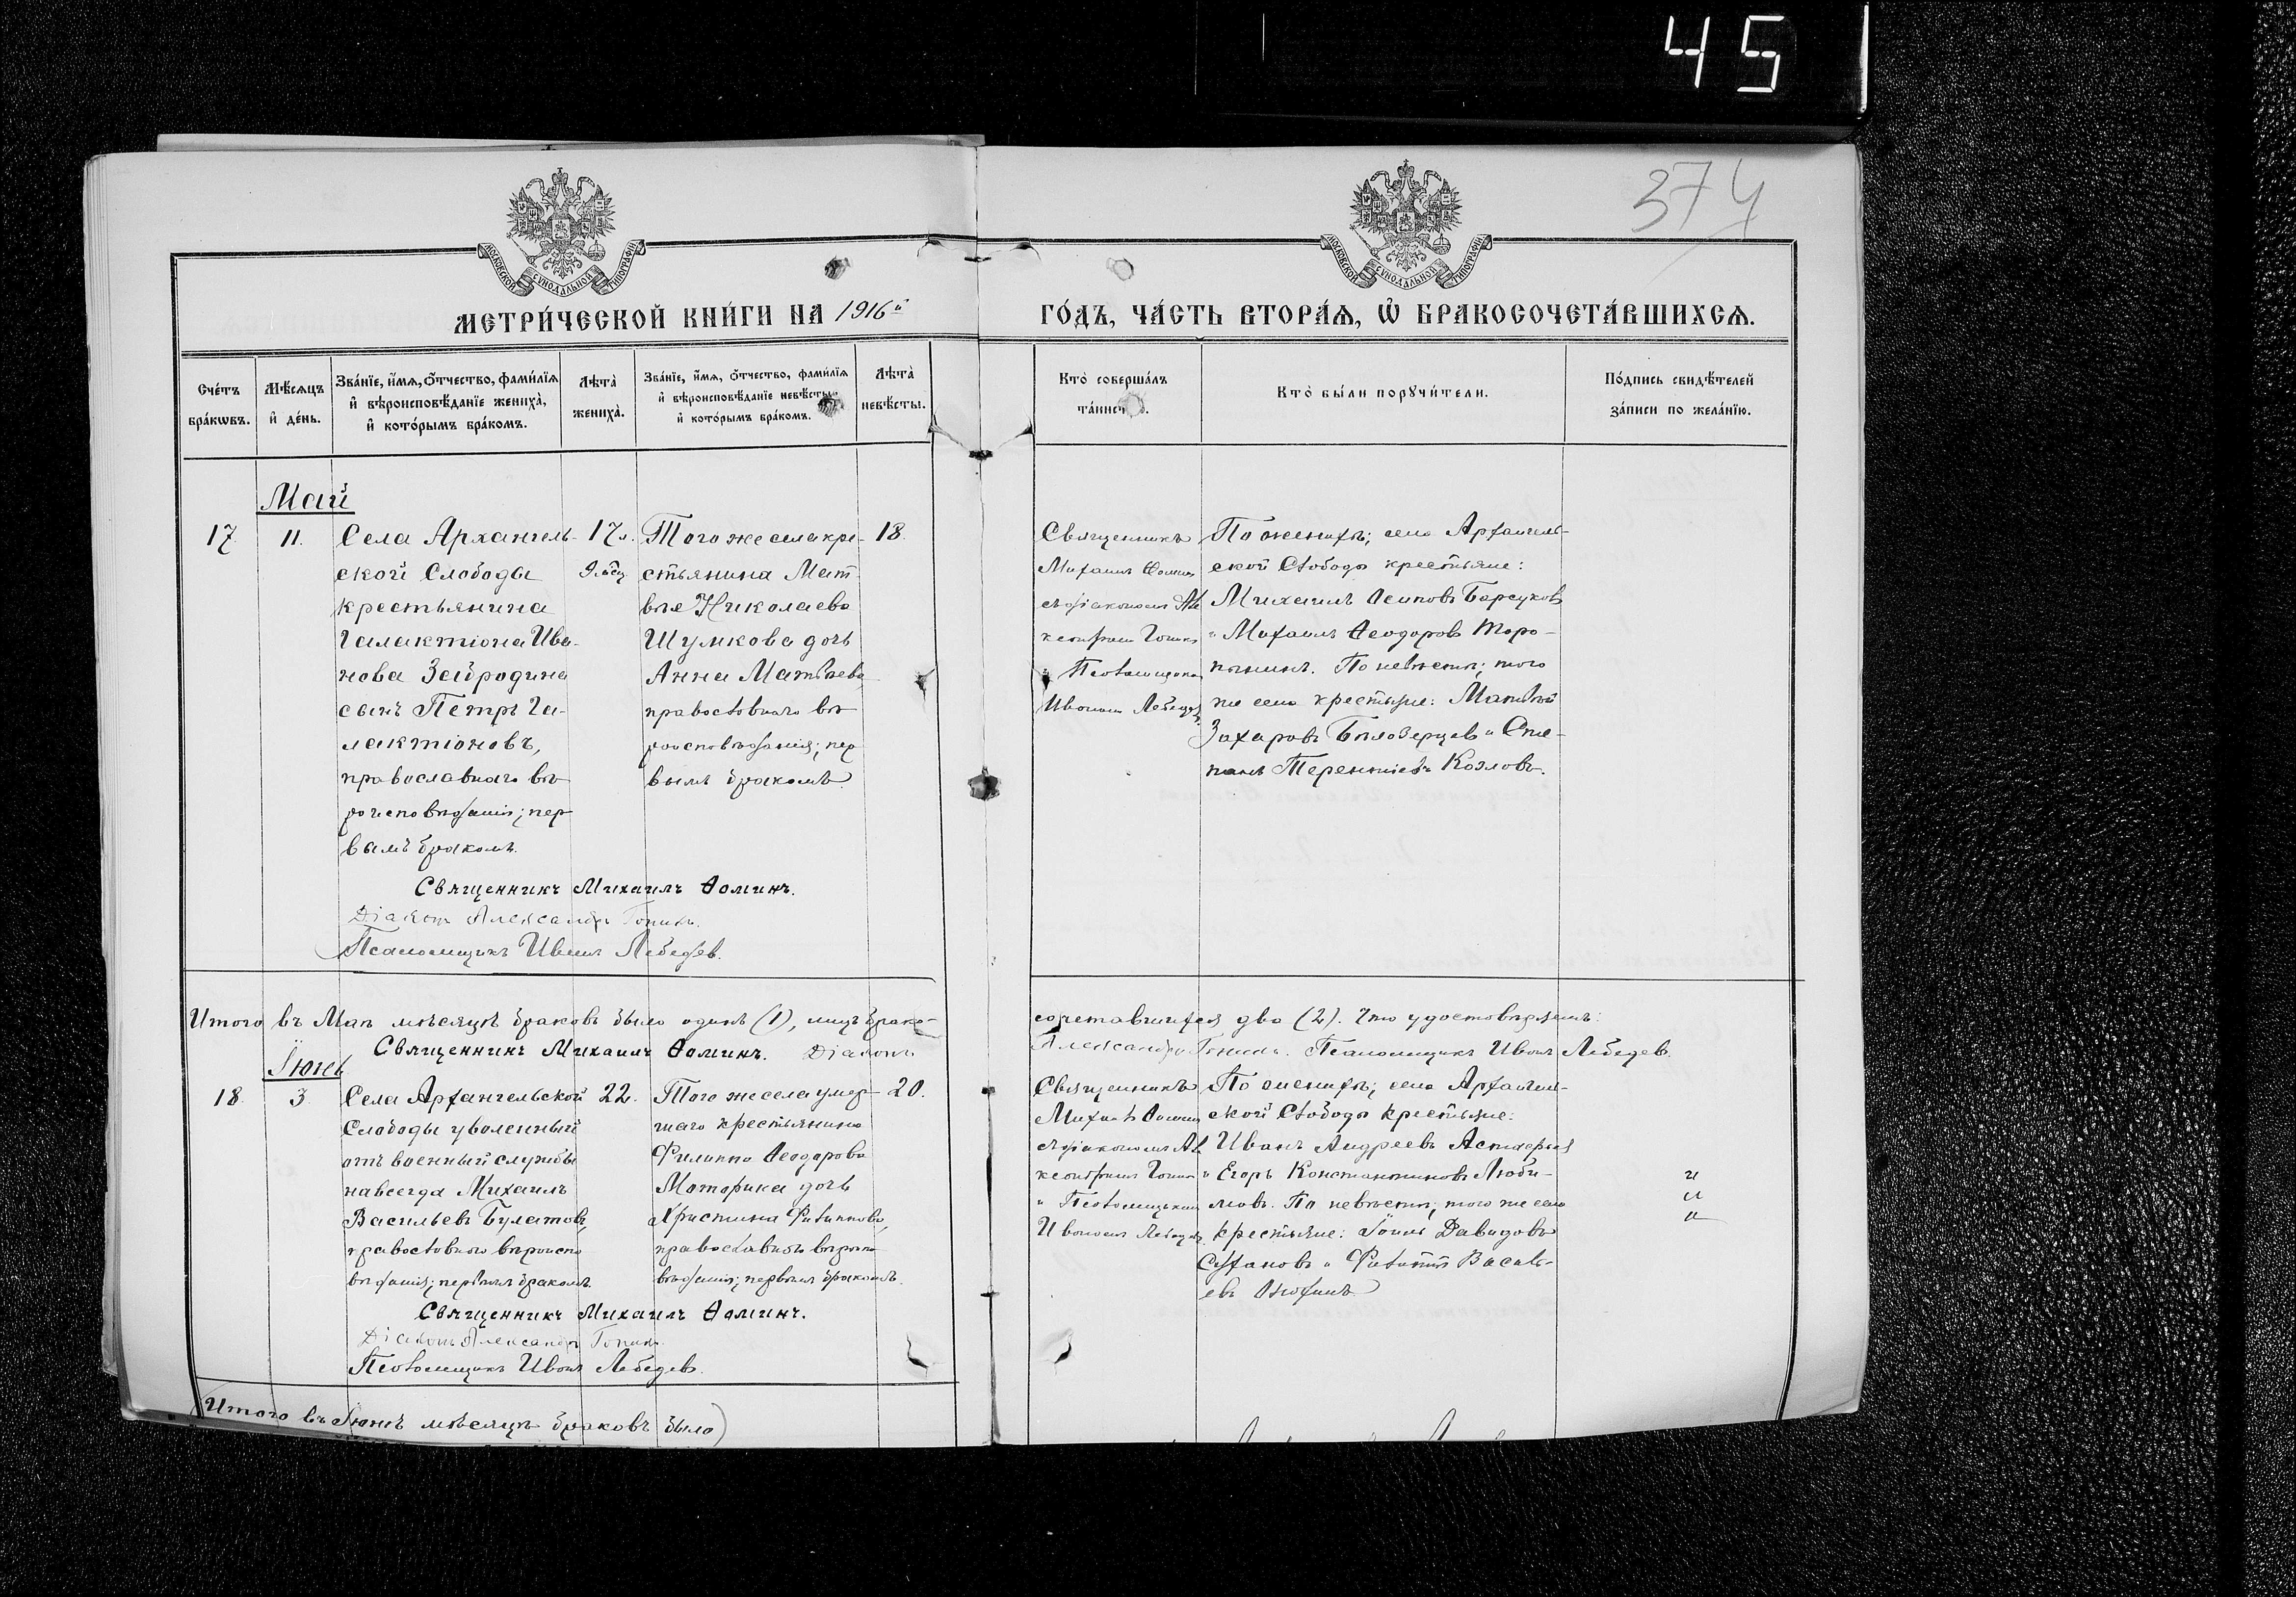 45
374
МОСКОВСКОЙ СѴНОДАЛЬНОЙ ТИПОГРАФІИ
МОСКОВСКОЙ СѴНОДАЛЬНОЙ ТИПОГРАФІИ
МЕТРИ́ЧЕСКОЙ КНИ́ГИ НА 1916й
ГО́ДЪ, ЧА́СТЬ ВТОРА́Ѧ, Ѽ БРАКОСОЧЕТА́ВШИХСѦ.
Сче́тъ бра́кωвъ.
Мѣ́сѧцъ и҆ де́нь.
Зва́нїе, и҆́мѧ, ѻ҆́тчество, фами́лїѧ
и҆ вѣроисповѣ́данїе жениха̀,
и҆ кото́рымъ бра́комъ.
Лѣта̀ жениха̀.
Зва́нїе, и҆́мѧ, ѻ҆́тчество, фами́лїѧ
и҆ вѣроисповѣ́данїе невѣ́сты,
и҆ кото́рымъ бра́комъ.
Лѣта̀ невѣ́сты.
Кто̀ соверша́лъ
Кто̀ бы́ли порꙋчи́тели.
По́дпись свидѣ́телей
за́писи по жела́нїю.
Май
17. 11.
Села Архангель-
ской Слободы
крестьянина
Галактіона Ива-
нова Забродина
сынъ Петръ Га-
лактіоновъ,
православнаго вѣ
роисповѣданія; пер
вымъ бракомъ.
17л.
9 мѣц
Того же села кре-
стьянина Мат-
вѣя Николаева
Шумкова дочь
Анна Матвѣева,
православнаго вѣ
роисповѣданія; пер
вымъ бракомъ.
18.
Священникъ
Михаилъ Ѳоминъ
съ діакономъ Але
ксандромъ
и Псаломщикомъ
Иваномъ Лебедев
По женихѣ; села Архангель-
ской Слободы крестьяне:
Михаилъ Осиповъ Барсуковъ
и Михаилъ Ѳеодоровъ Торо-
пынинъ. По невѣстѣ; того
же села крестьяне: Матвѣй
Захаровъ Бѣлозерцевъ и Сте-
панъ Терентіевъ Козловъ.
Священникъ Михаилъ Ѳоминъ.
Діаконъ Александръ
Псаломщикъ Иванъ Лебедев.
Итого въ Маѣ мѣсяцѣ браковъ было одинъ (1), лицъ брако-
сочетавшихся два (2). Что удостовѣряемъ:
Священникъ Михаилъ Ѳоминъ. Діаконъ
Александръ Псаломщикъ Иванъ Лебедев.
Іюнь
18. 3.
Села Архангельской
Слободы уволенный
отъ военный службы
навсегда Михаилъ
Васильевъ Булатовъ,
православнаго вѣроиспо
вѣданія; первымъ бракомъ.
22.
Того же села умер-
шаго крестьянина
Филиппа Ѳеодорова
дочь
Христина Филиппова,
православнаго вѣроиспо
вѣданія; первымъ бракомъ.
20.
Священникъ
Михаилъ Ѳоминъ
съ діакономъ Але
ксандромъ
и Псаломщикомъ
Иваномъ Лебедев
По женихѣ; села Архангель-
ской Слободы крестьяне:
Иванъ Андреевъ
и Егоръ Константиновъ Люби-
мовъ. По невѣстѣ; того же села
крестьяне: Давидовъ
и Филиппъ Василь-
евъ
Священникъ Михаилъ Ѳоминъ.
Діаконъ Александръ
Псаломщикъ Иванъ Лебедевъ.
Итого въ Іюнѣ мѣсяцѣ браковъ было